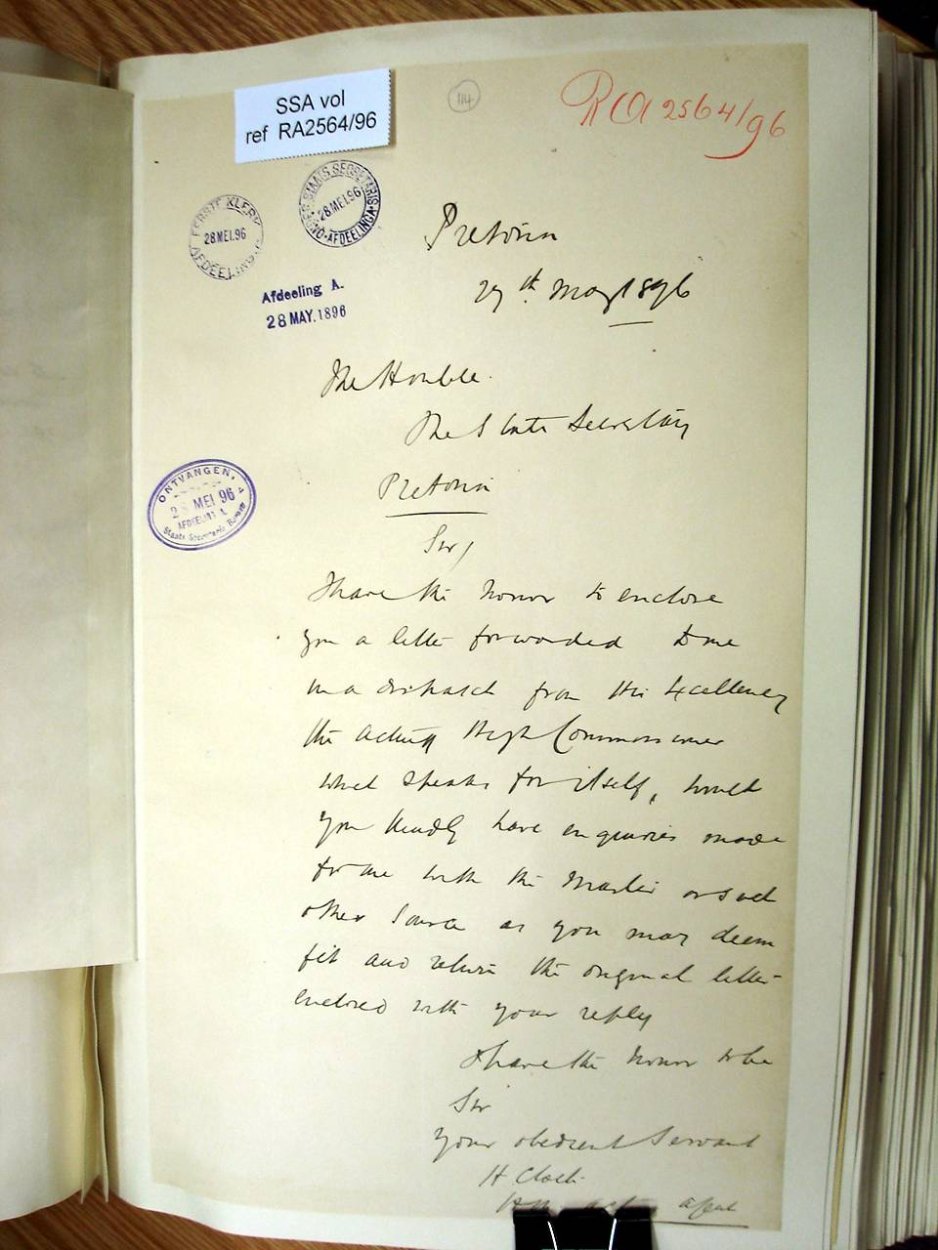 SSA vol
ref RA2564/96
114
RA 2564/96
EERSTE KLERK
28 MEI. 96
AFDEELING
STAATS SECRETARIS
28 MEI. 96
AFDEELING A
Afdeeling A.
28 MAY. 1896
Pretoria
27th May 1896
The Honble.
The State Secretary
Pretoria
ONTVANGEN,
28 MEI 96
AFDEELING A
Sir,
I have the honor to enclose
you a letter forwarded to me
in a dispatch from His Excellency
the Acting High Commissioner
which speaks for itself, would
you kindly have enquiries made
for me with the Master or such
other source as you may deem
fit and return the original letter
enclosed with your reply
I have the honor to be
Sir
your obedient Servant
H Cloete
HM actg agent